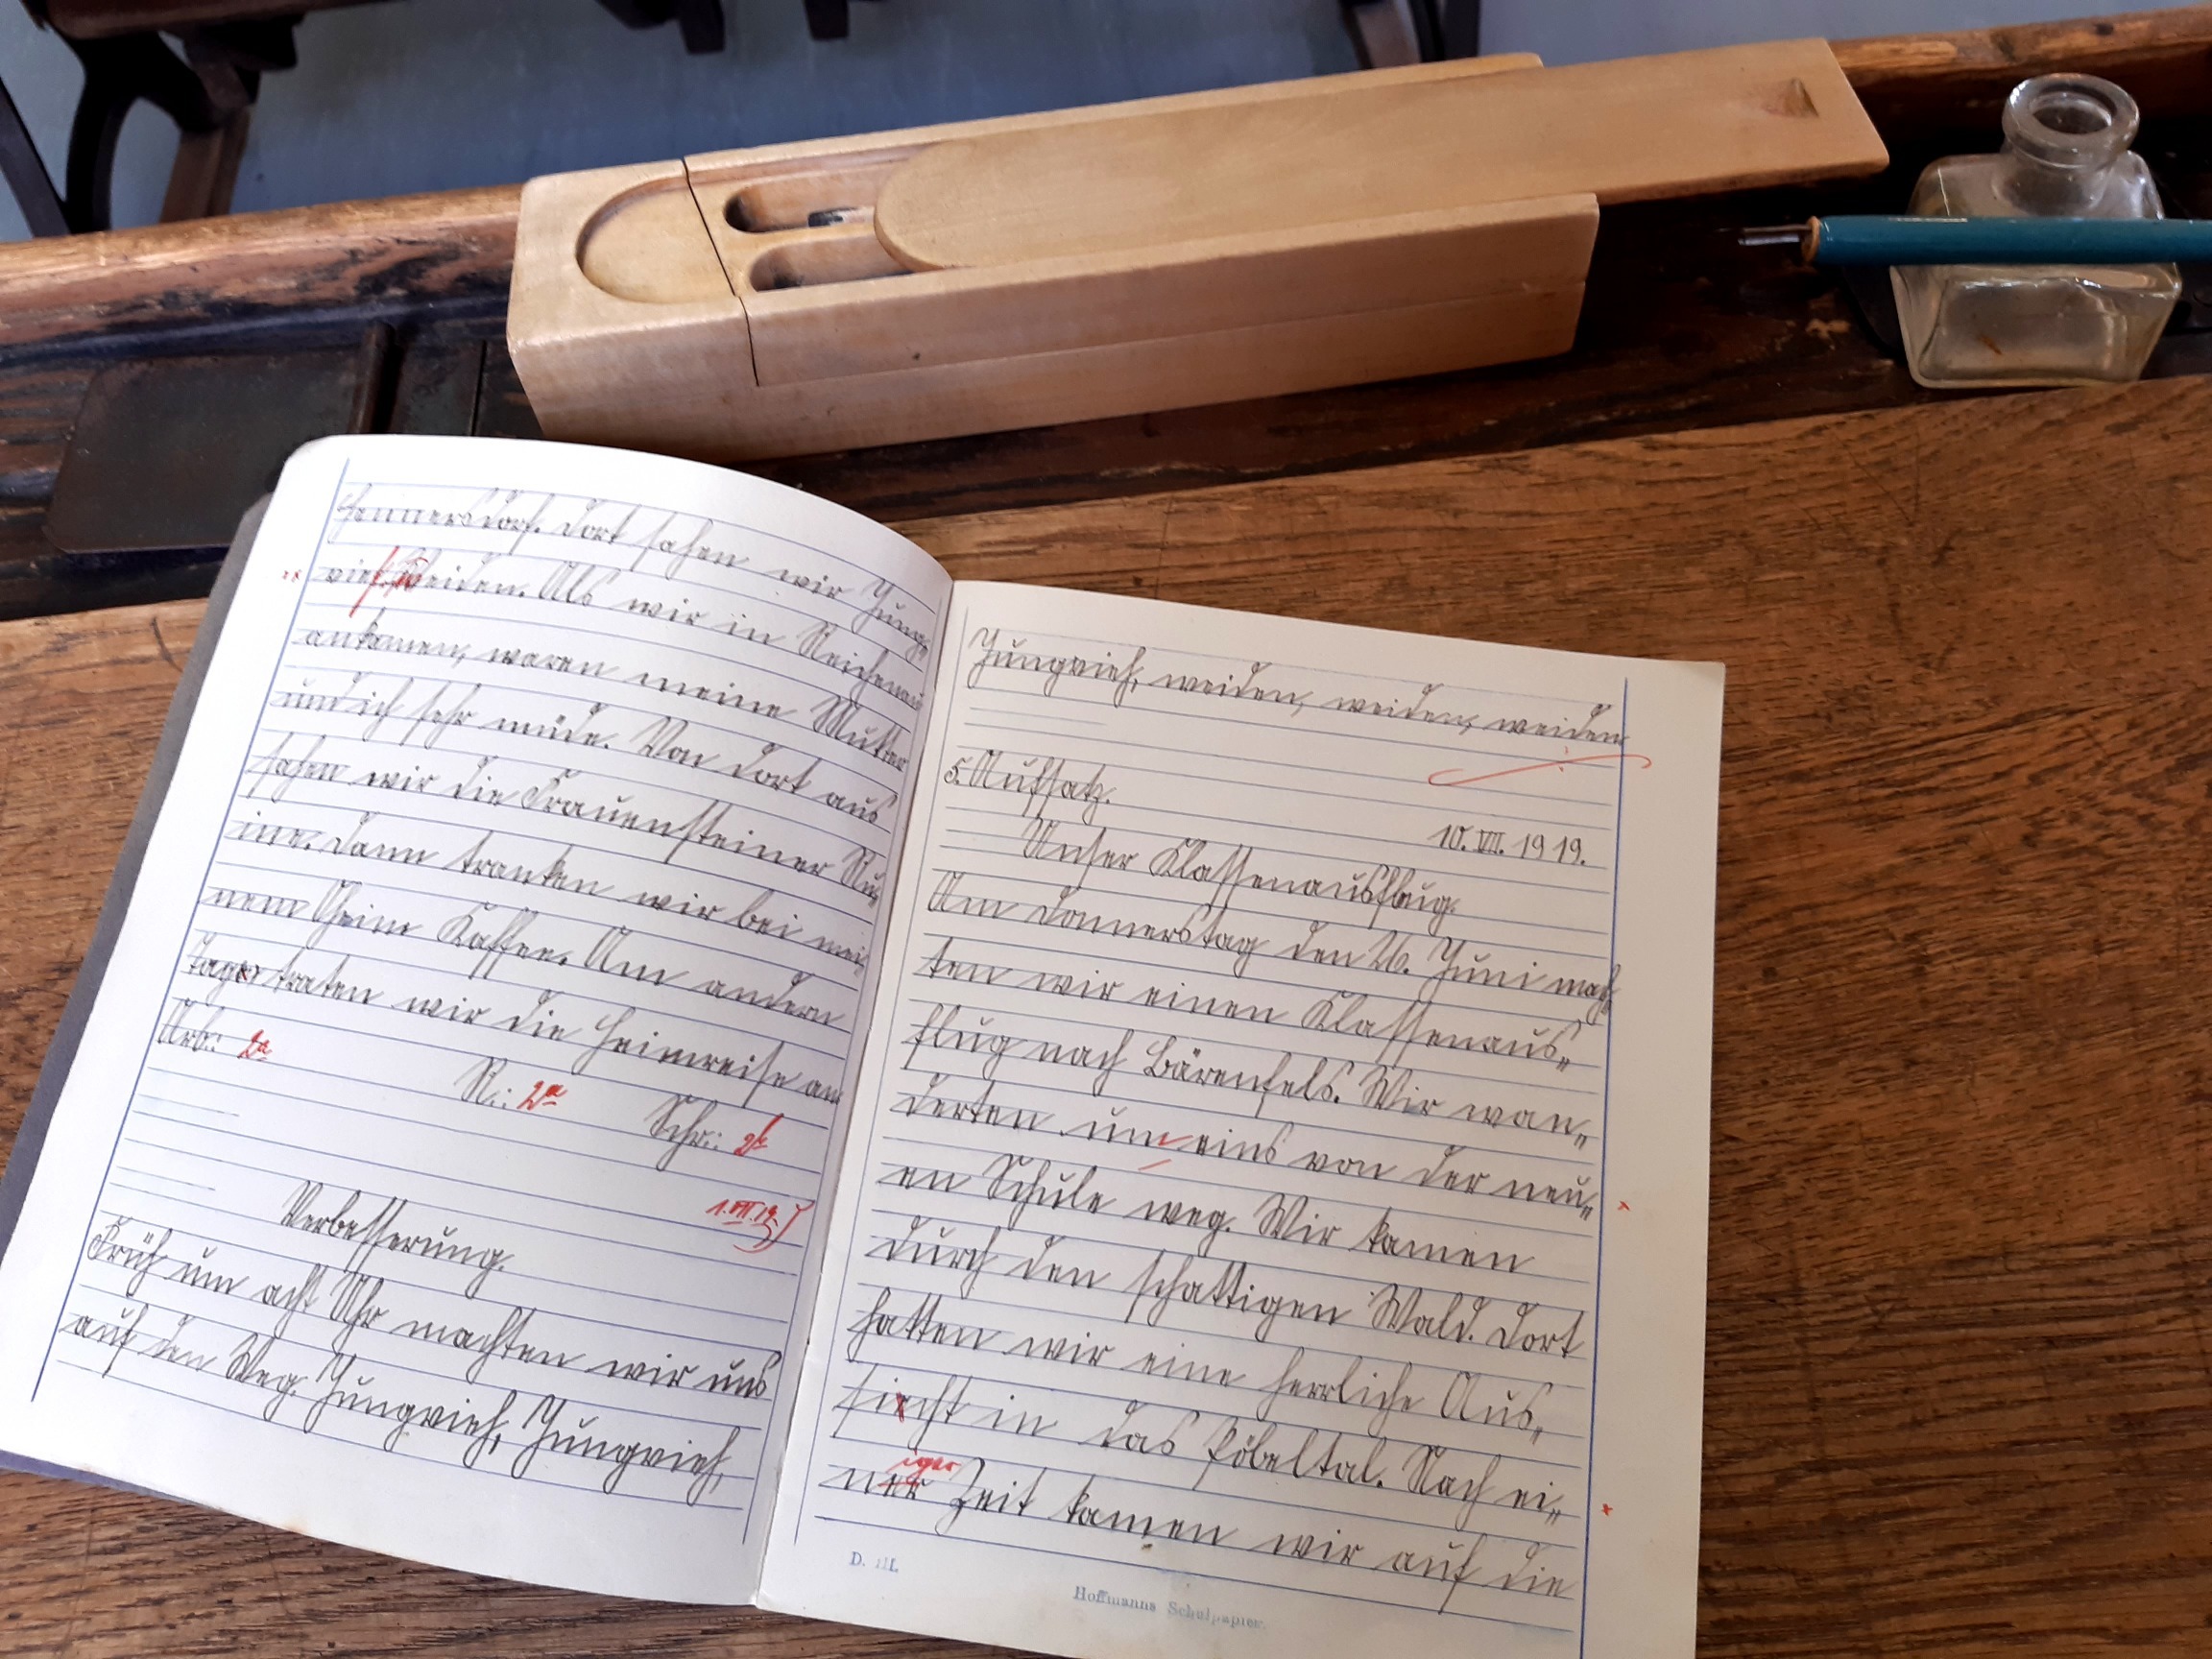 Hennersdorf. Dort sahen wir Jung„
vieh weiden. Als wir in Reichenau
ankamen, waren meine Mutter
und ich sehr müde. Von dort aus
sahen wir die Frauensteiner Ru„
ine. Dann tranken wir bei mei„
nem Oheim Kaffee. Am andern
Tage traten wir die Heimreise an.
Arb.: 2a R.: 2a Schr.:
1.VII.19.
Verbesserung.
Früh um acht Uhr machten wir uns
auf den Weg. Jungvieh, Jungvieh,
Jungvieh, weiden, weiden, weiden
5. Aufsatz.
10. VII. 1919.
Unser Klassenausflug.
Am Donnerstag den 26. Juni mach„
ten wir einen Klassenaus„
flug nach Bärenfels. Wir wan„
derten um eins von der neu„
en Schule weg. Wir kamen
durch den schattigen Wald. Dort
hatten wir eine herrliche Aus„
sicht in das Pöbeltal. Nach ei„
iger
ner Zeit kamen wir auf die
D. III.
Hoffmanns Schulpapier.